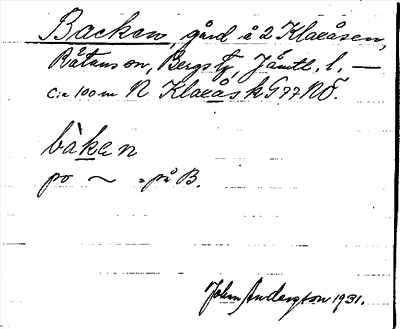 Backen, gård å 2 Klaxåsen,
Rätans sn, Bergs tg, Jämtl. l. —
c:a 100 m N Klaxås k G 77 NÖ.
bàken
po ~ = på B.
John Anderson 1931.